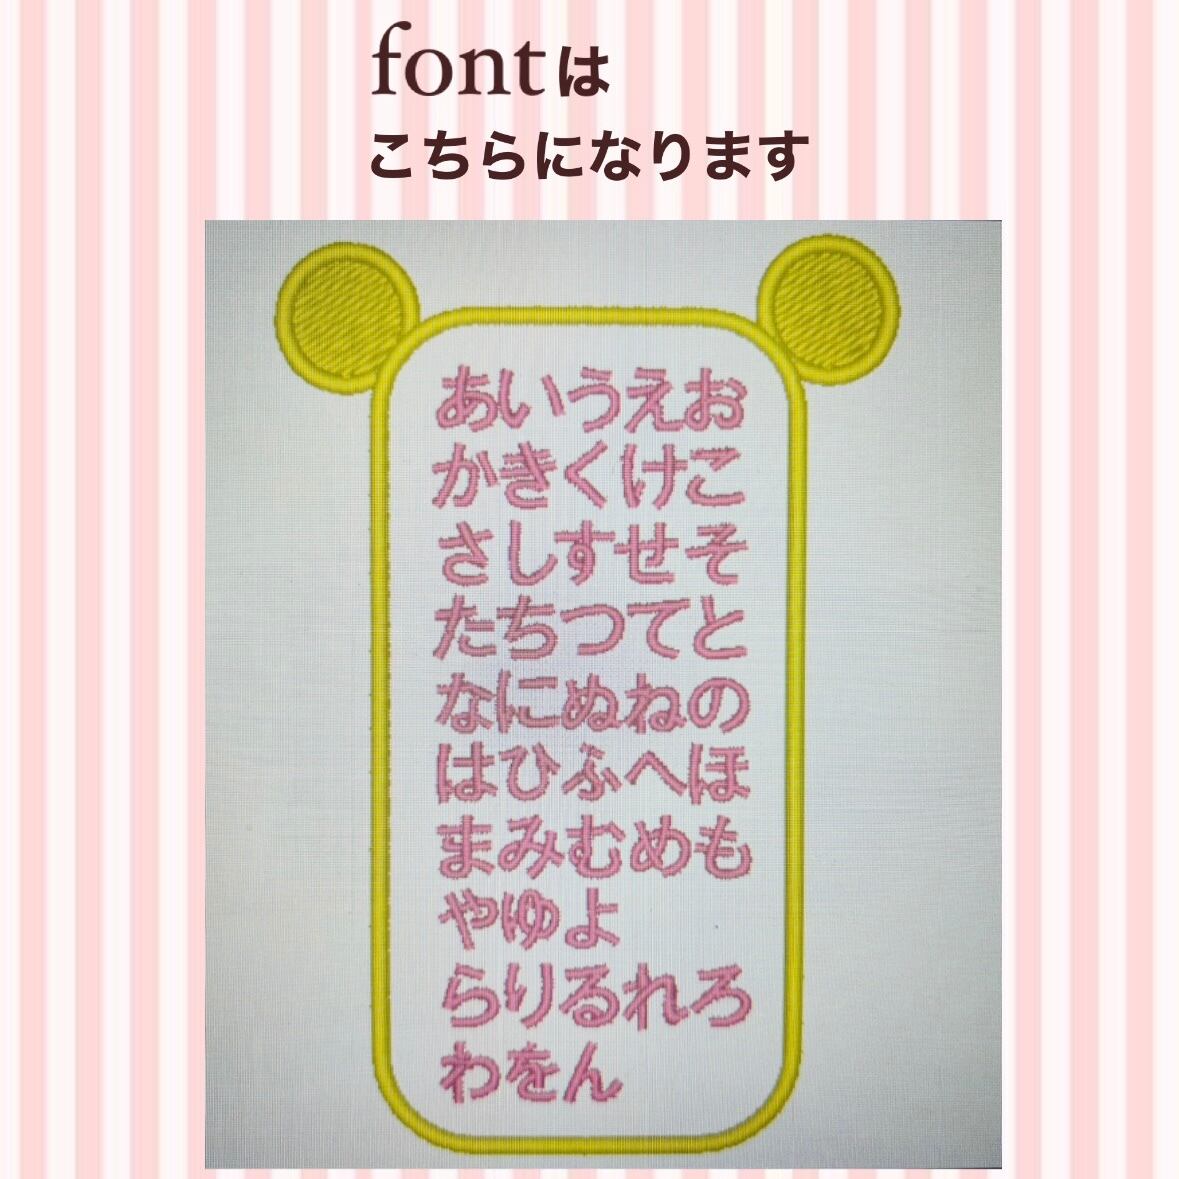 fontは
こちらになります
あいうえお
かきくけこ
さしすせそ
たちつてと
なにぬねの
はひふへほ
まみむめも
やゆよ
らりるれろ
わをん